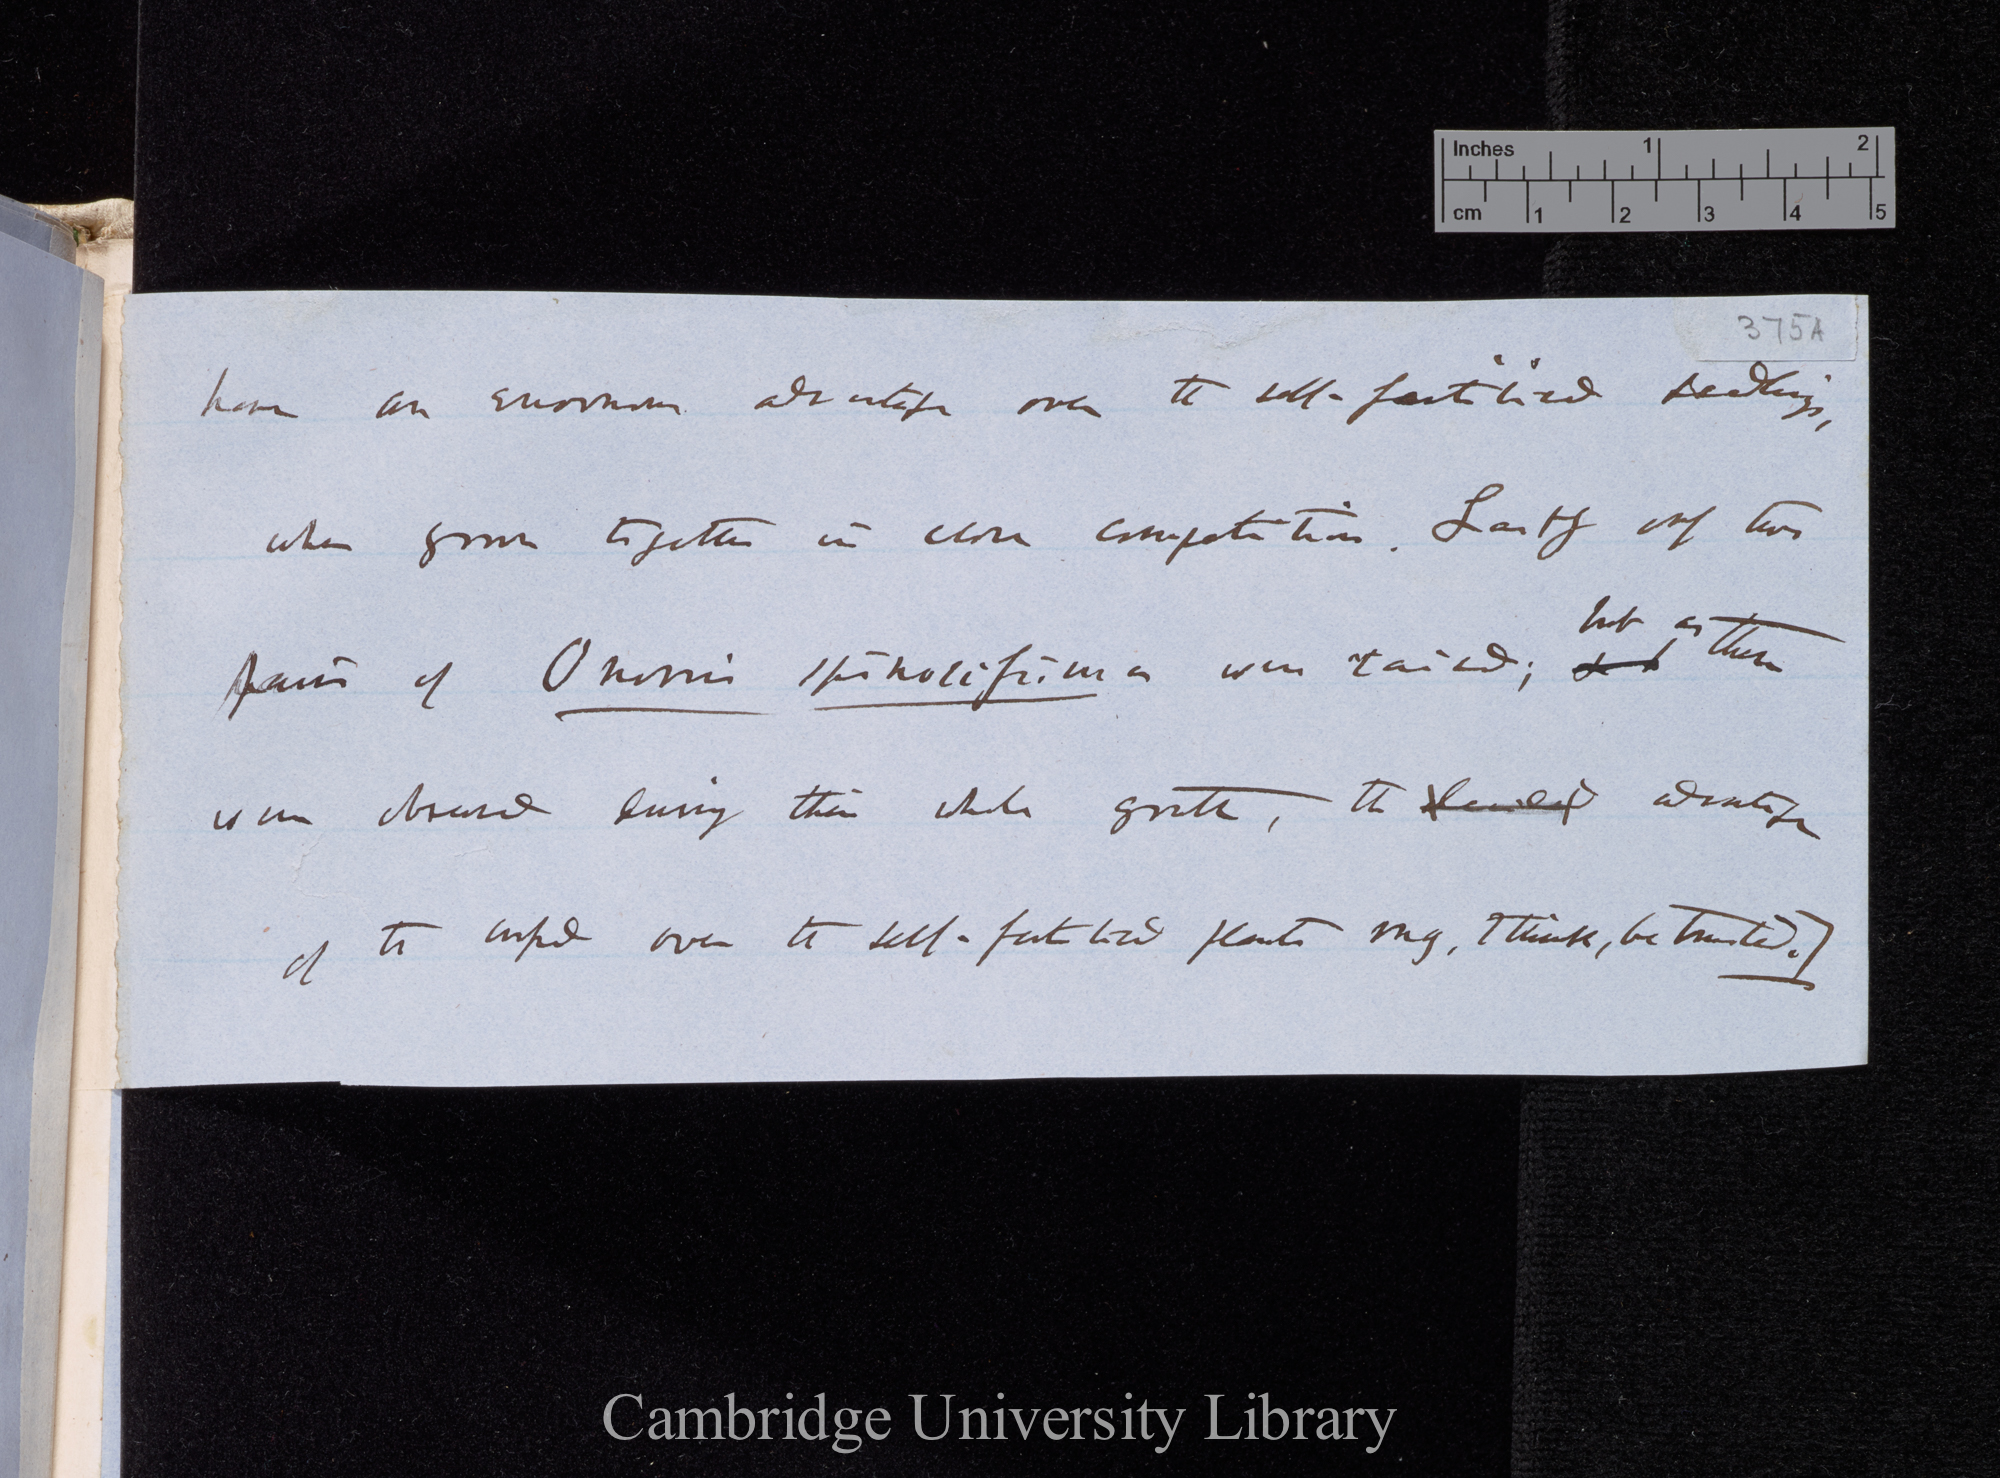 Inches 1 2
cm 1 2 3 4 5
375A
have an enormous advantage over the self-fertilised seedlings,
when grown together in close competition. Lastly only two
but as these
pairs of Ononis minutissima were raised;
were observed during their whole growth, the advantage
of the crossed over the self-fertilised plants may, I think, be trusted.]
Cambridge University Library